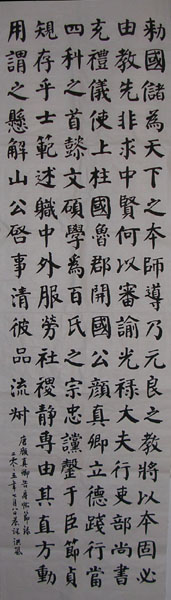 勅國儲為天下之本師導乃元良之教將以本固必
由教先非求中賢何以審諭光祿大夫行吏部尚書
充禮儀使上柱國魯郡開國公顏真卿立德踐行當
四科之首懿文碩學為百氏之宗忠讜罄于臣節貞
規存乎士範述軄中外服勞社稷靜專由其直方動
用謂之懸解山公啓事清彼品流州
唐顏真卿告身帖節錄